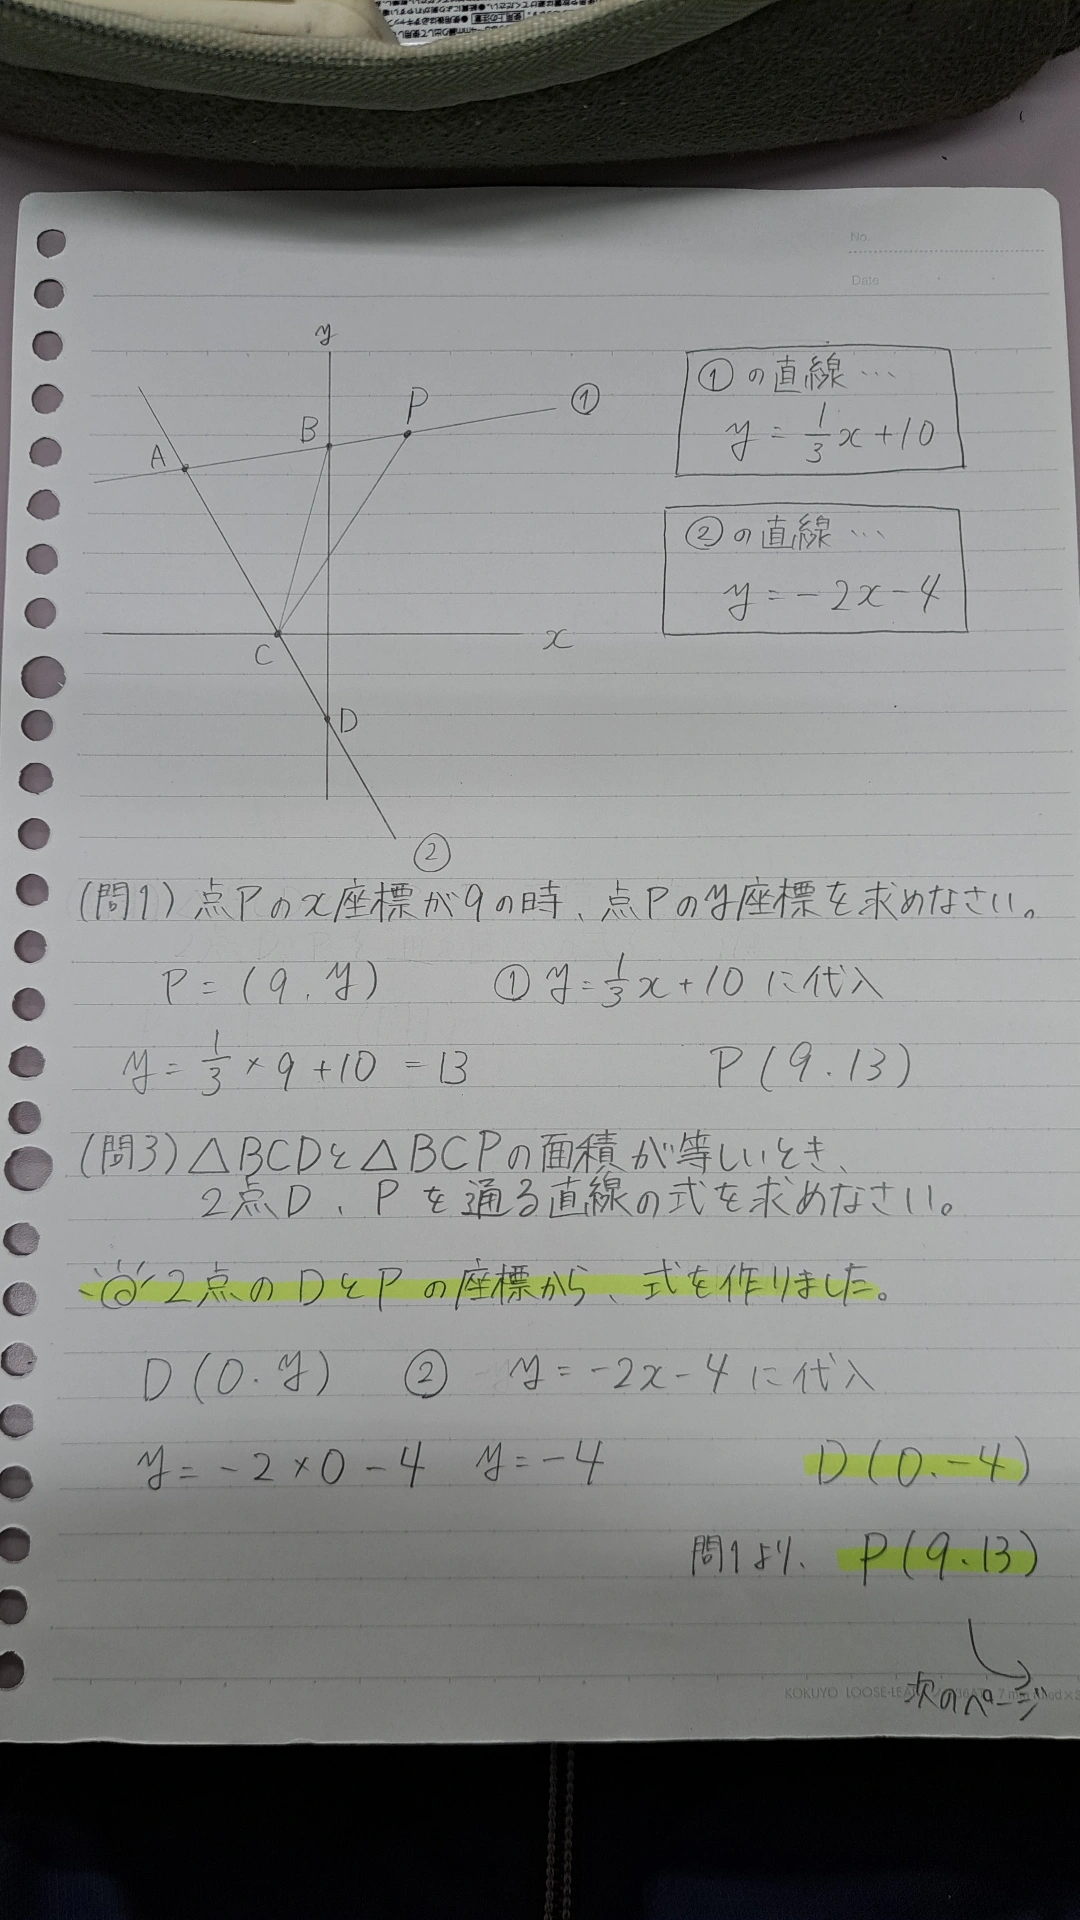 No.
Date
y
①
P
B
A
x
C
D
②
①の直線…
y = 1/3 x + 10
②の直線…
y = -2x-4
(問1) 点Pのx座標が9の時、点Pのy座標を求めなさい。
P = (9, y) ① y = 1/3 x + 10 に代入
y = 1/3 × 9 + 10 = 13 P(9.13)
(問3) △BCDと△BCPの面積が等しいとき、
2点D、Pを通る直線の式を求めなさい。
2点のDとPの座標から、式を作りました。
D(0.y) ② y = -2x-4 に代入
y = -2×0-4 y = -4 D(0.-4)
問1より、P(9.13)
次のページ
KOKUYO LOOSE-LEAF